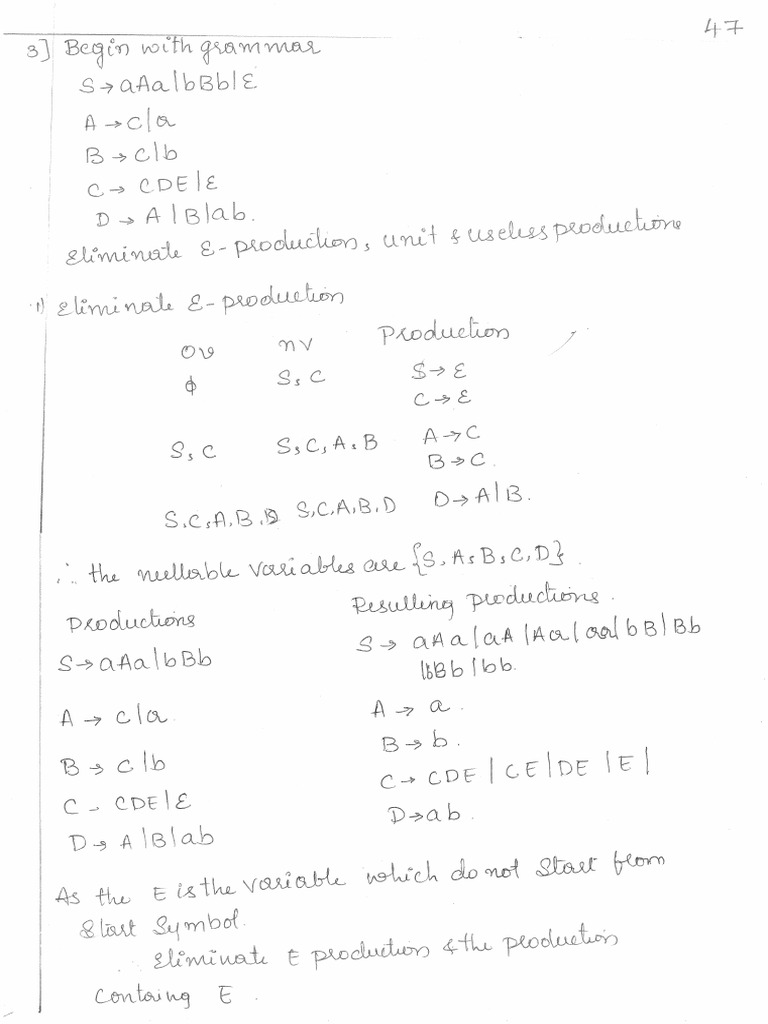 47
3] Begin with grammar
S → aAa|bBb|ε
A → C|a
B → C|b
C → CDE|ε
D → A|B|ab.
Eliminate ε-production, unit & useless productions
1) Eliminate ε-production
OV nV Production
ϕ S, C S → ε
C → ε
S, C S, C, A, B A → C
B → C.
S, C, A, B, D S, C, A, B, D D → A|B.
∴ the nullable variables are {S, A, B, C, D}.
Productions Resulting productions.
S → aAa|bBb S → aAa|aA|Aa|aa|bB|Bb
|bBb|bb.
A → C|a A → a.
B → C|b B → b.
C → CDE|ε C → CDE|CE|DE|E|
D → A|B|ab D → ab.
As the E is the variable which do not start from
start symbol.
∴ Eliminate E production & the production
Containg E.